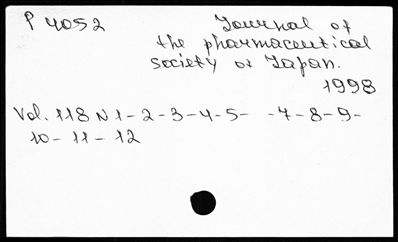 P 4052
Journal of
the pharmaceutical
society of Japan.
1998
Vol. 118 N 1-2-3-4-5- -7-8-9-
10-11-12